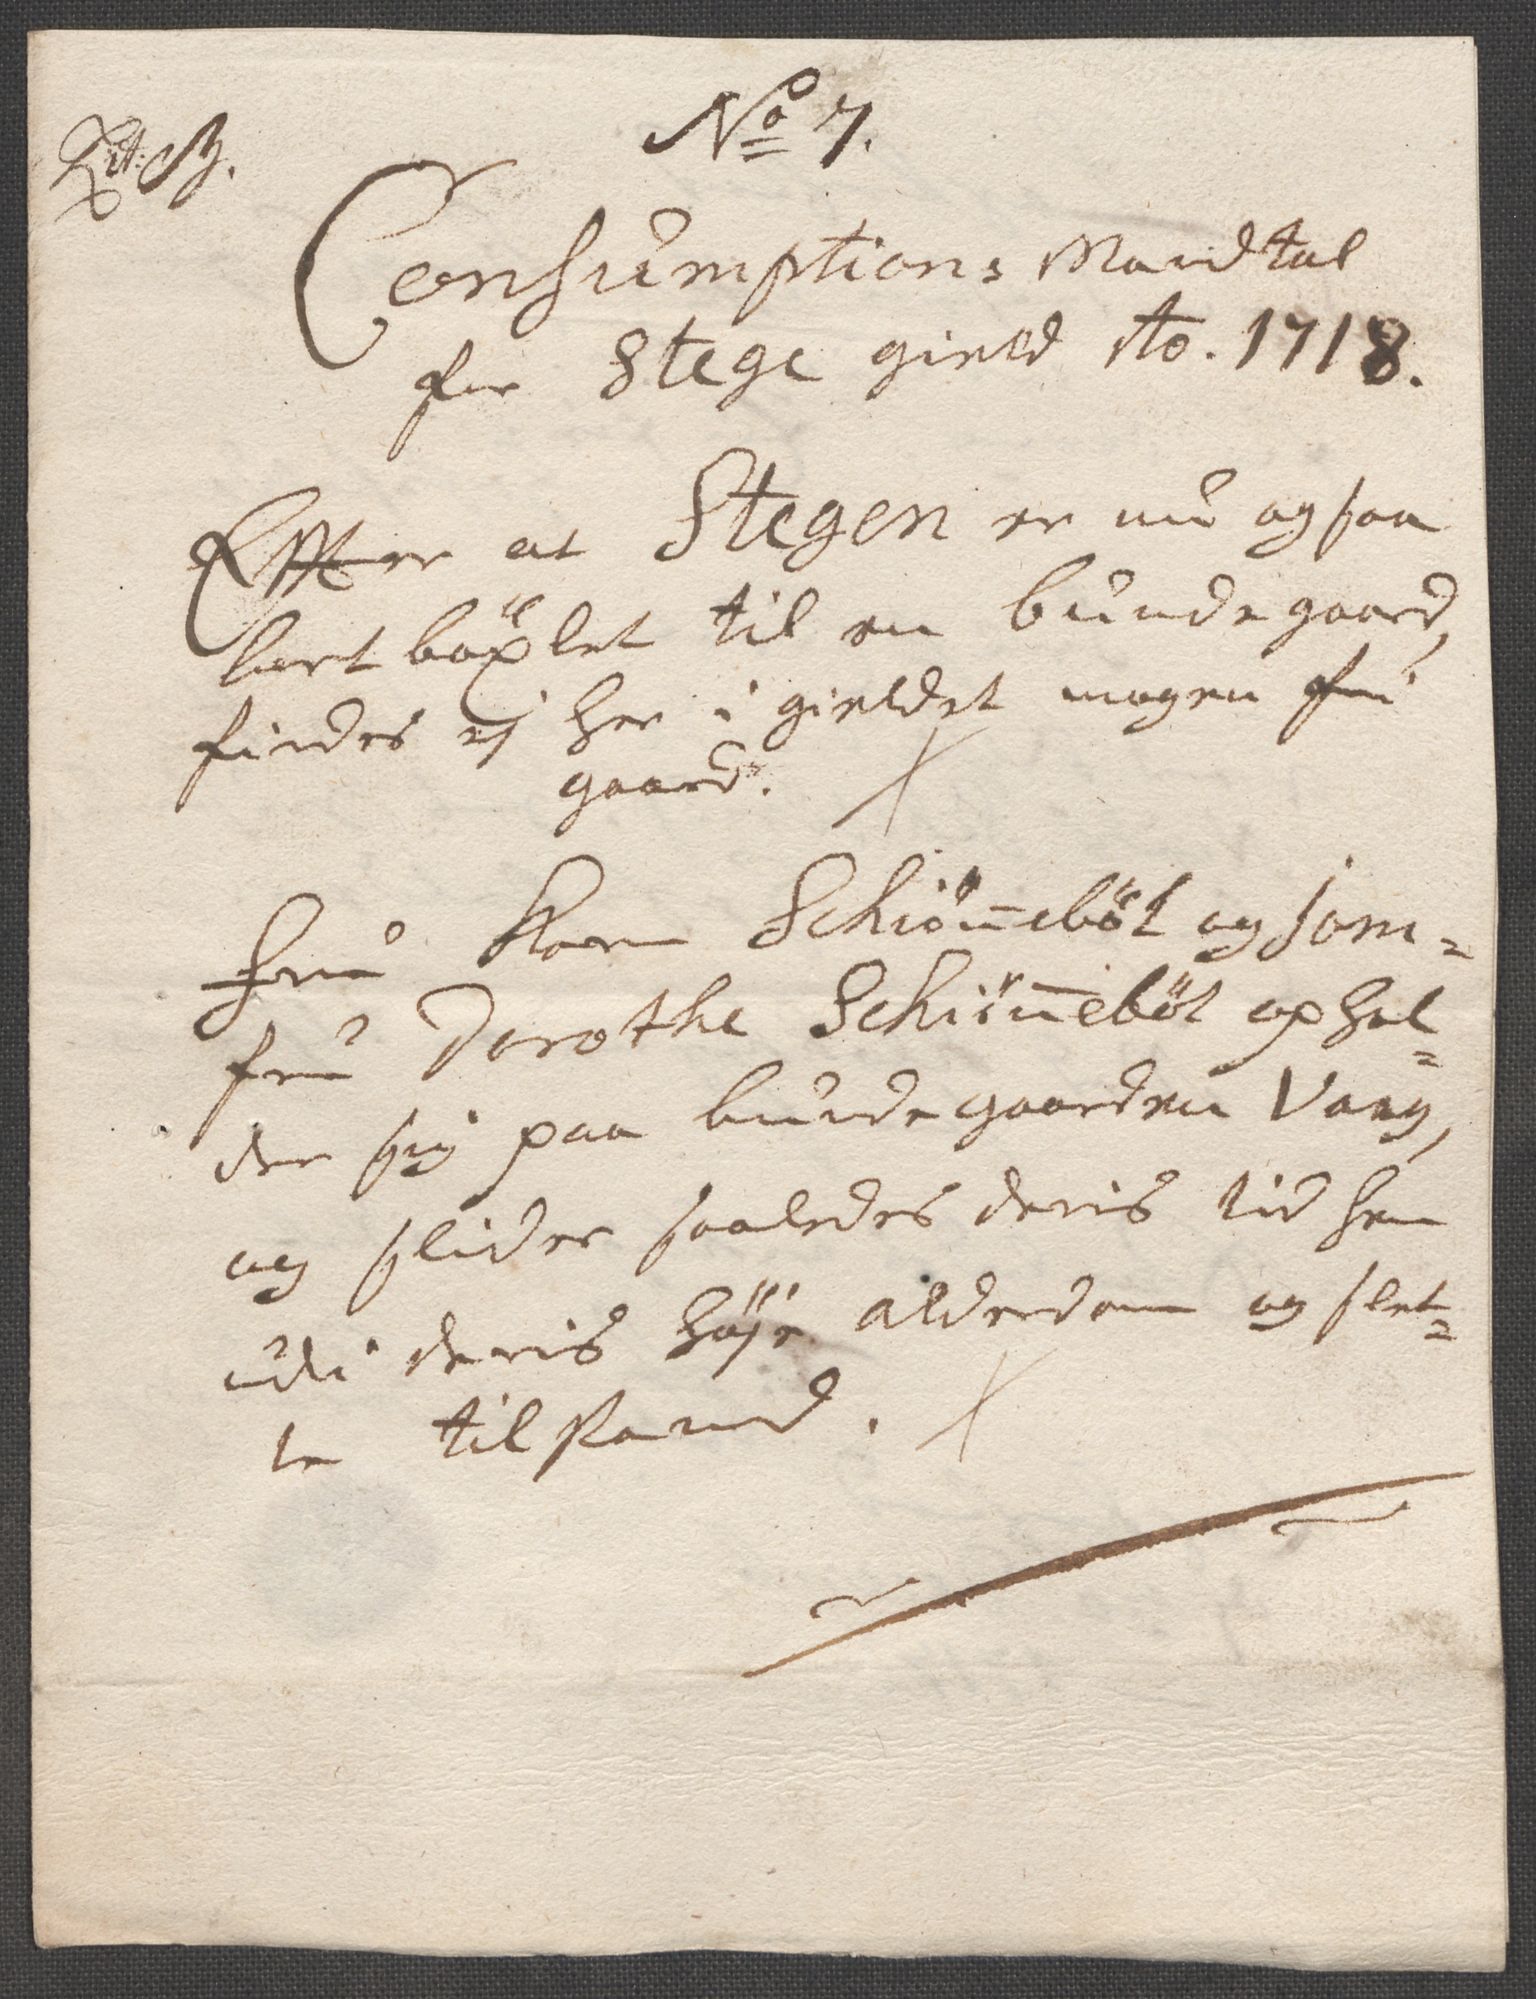 No 7.
Lit: B.
Consumptions Mandtal
for Stege gield Ao. 1718.
Effter at Stegen er nu ogsaa
bort böxlet til en bundegaard,
findes ej her i gieldet nogen frii
gaard.
Fru Karen Schiönneböl og Jom=
fru Dorothe Schiönneböl ophol=
der sig paa bundegaarden Vaag,
og slider saaledes deris tid hen
udi deris höje alderdom og slet=
te tilstand.